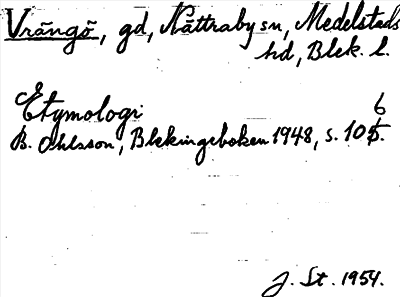 Vrängö, gd, Nättraby sn, Medelstads
hd, Blek. l.
Etymologi
B. Ohlsson, Blekingeboken 1948, s. 106.
J. St. 1954.